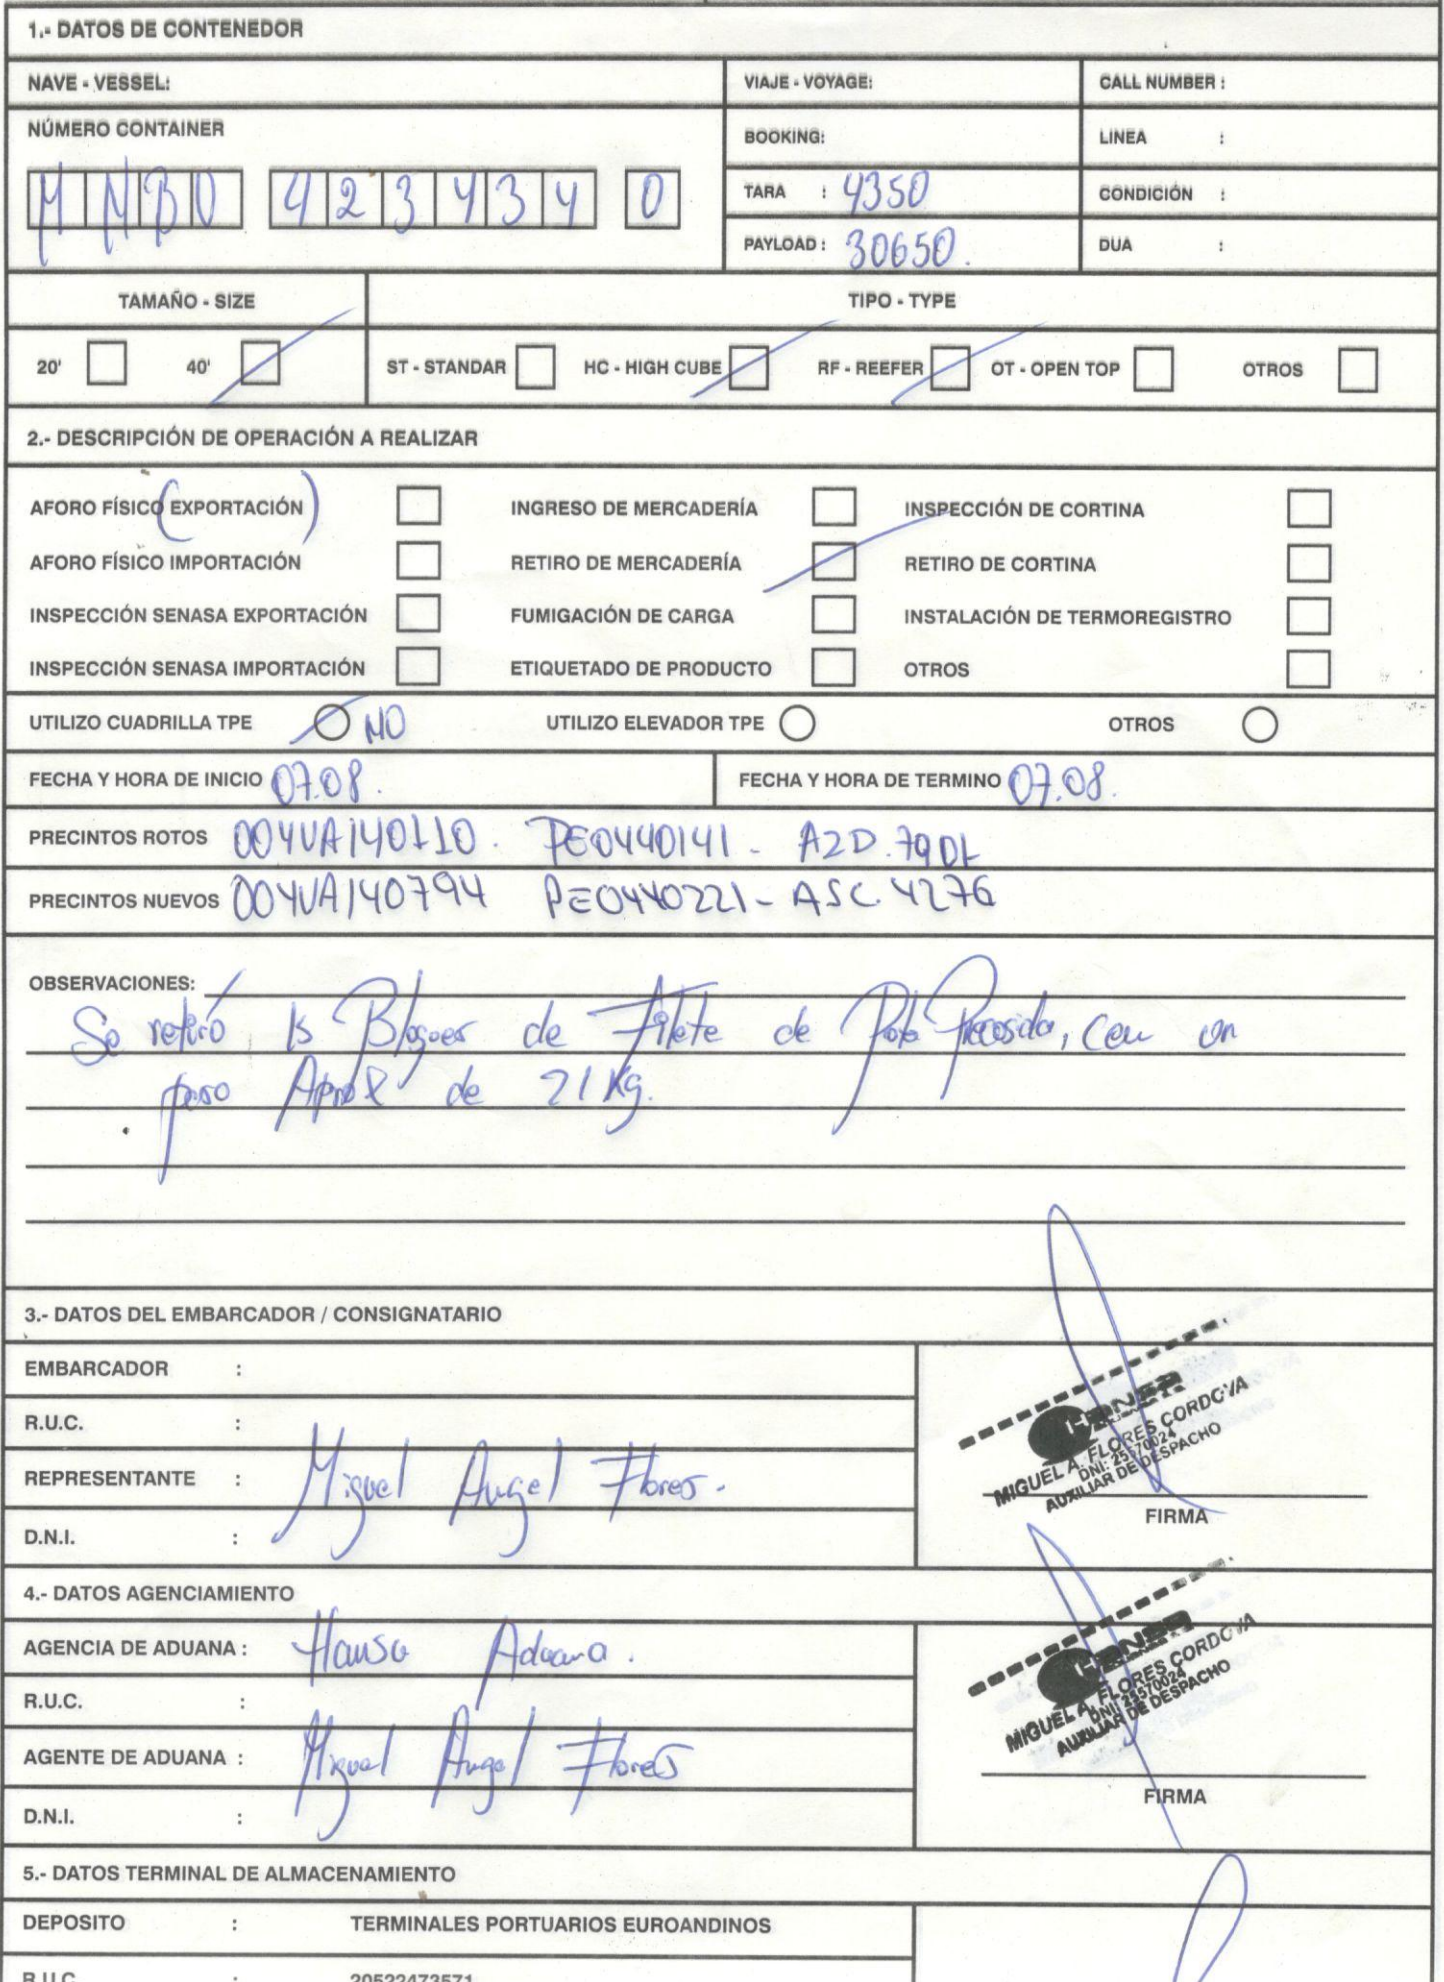 1.- DATOS DE CONTENEDOR
NAVE - VESSEL: VIAJE - VOYAGE: CALL NUMBER :
NÚMERO CONTAINER BOOKING: LINEA :
MNBU 423434 0 TARA : 4350 CONDICIÓN :
PAYLOAD : 30650. DUA :
TAMAÑO - SIZE TIPO - TYPE
20' 40' ST - STANDAR HC - HIGH CUBE RF - REEFER OT - OPEN TOP OTROS
2.- DESCRIPCIÓN DE OPERACIÓN A REALIZAR
AFORO FÍSICO (EXPORTACIÓN) INGRESO DE MERCADERÍA INSPECCIÓN DE CORTINA
AFORO FÍSICO IMPORTACIÓN RETIRO DE MERCADERÍA RETIRO DE CORTINA
INSPECCIÓN SENASA EXPORTACIÓN FUMIGACIÓN DE CARGA INSTALACIÓN DE TERMOREGISTRO
INSPECCIÓN SENASA IMPORTACIÓN ETIQUETADO DE PRODUCTO OTROS
UTILIZO CUADRILLA TPE NO UTILIZO ELEVADOR TPE OTROS
FECHA Y HORA DE INICIO 07.08. FECHA Y HORA DE TERMINO 07.08.
PRECINTOS ROTOS PE0440141 - A2D.
PRECINTOS NUEVOS 004UA140794 PE0440221 - ASC. 4276
OBSERVACIONES:
Se retiró Bloques de Filete de Pota Precosida, con un
peso Aprox de 21 Kg.
3.- DATOS DEL EMBARCADOR / CONSIGNATARIO
EMBARCADOR :
R.U.C. :
REPRESENTANTE : Miguel Angel Flores.
D.N.I. :
MIGUEL A. FLORES CORDOVA
DNI: 25570024
AUXILIAR DE DESPACHO
FIRMA
4.- DATOS AGENCIAMIENTO
AGENCIA DE ADUANA : Hansa Aduana.
R.U.C. :
AGENTE DE ADUANA : Miguel Angel Flores
D.N.I. :
MIGUEL A. FLORES CORDOVA
DNI: 25570024
AUXILIAR DE DESPACHO
FIRMA
5.- DATOS TERMINAL DE ALMACENAMIENTO
DEPOSITO : TERMINALES PORTUARIOS EUROANDINOS
R.U.C. : 20522473571